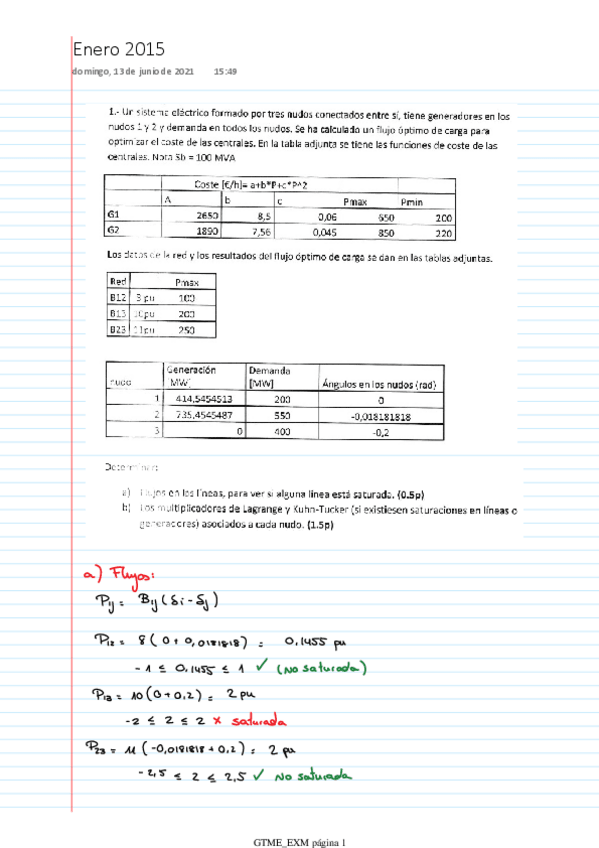 Enero 2015
domingo, 13 de junio de 2021 15:49
1.- Un sistema eléctrico formado por tres nudos conectados entre sí, tiene generadores en los
nudos 1 y 2 y demanda en todos los nudos. Se ha calculado un flujo óptimo de carga para
optimizar el coste de las centrales. En la tabla adjunta se tiene las funciones de coste de las
centrales. Nota Sb = 100 MVA
Coste [€/h]= a+b*P+c*P^2
A b c Pmax Pmin
G1 2650 8,5 0,06 650 200
G2 1890 7,56 0,045 850 220
Los datos de la red y los resultados del flujo óptimo de carga se dan en las tablas adjuntas.
Red Pmax
B12 8 pu 100
B13 10pu 200
B23 11pu 250
nudo Generación [MW] Demanda [MW] Ángulos en los nudos (rad)
1 414,5454513 200 0
2 735,4545487 550 -0,018181818
3 0 400 -0,2
Determinar:
a) Flujos en las líneas, para ver si alguna línea está saturada. (0.5p)
b) Los multiplicadores de Lagrange y Kuhn-Tucker (si existiesen saturaciones en líneas o
generadores) asociados a cada nudo. (1.5p)
a) Flujos:
Pij = Bij (δi - δj)
P12 = 8 ( 0 + 0,0181818) = 0,1455 pu
-1 ≤ 0,1455 ≤ 1 ✓ (No saturada)
P13 = 10 (0 + 0,2) = 2 pu
-2 ≤ 2 ≤ 2 × saturada
P23 = 11 (-0,0181818 + 0,2) = 2 pu
-2,5 ≤ 2 ≤ 2,5 ✓ No saturada
GTME_EXM página 1